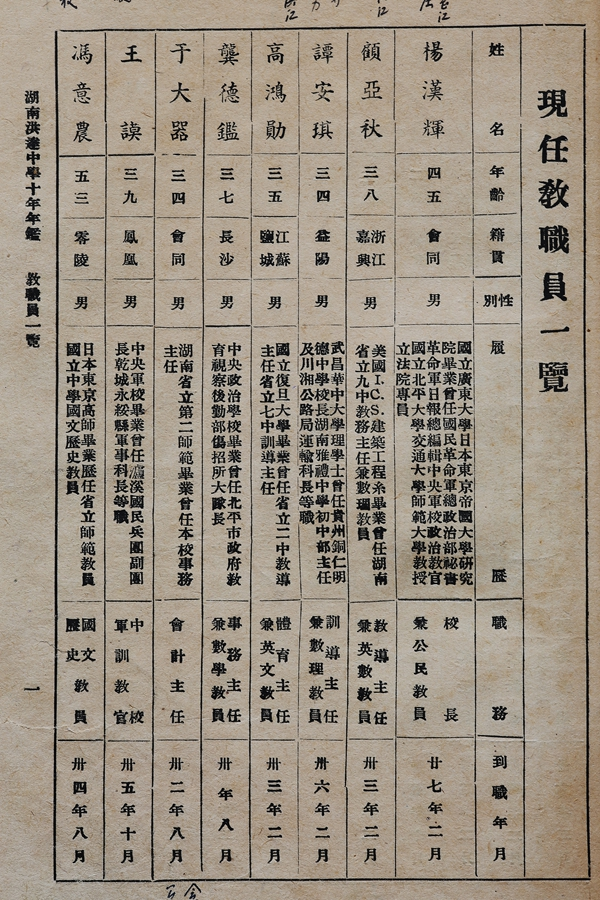 現任教職員一覽
姓名 年齡 籍貫 性別 履歷 職務 到職年月
楊漢輝 四五 會同 男
國立廣東大學日本東京帝國大學研究
院畢業曾任國民革命軍總政治部祕書
革命軍日報總編輯中央軍校政治教官
國立北平大學交通大學師範大學教授
立法院專員
校長
兼公民教員
廿七年二月
顧亞秋 三八
浙江
嘉興
男
美國I.C.S.建築工程系畢業曾任湖南
省立九中教務主任兼數理教員
教導主任
兼英數教員
卅三年二月
譚安琪 三四 益陽 男
武昌華中大學理學士曾任貴州銅仁明
德中學校長湖南雅禮中學初中部主任
及川湘公路局運輸科長等職
訓導主任
兼數理教員
卅六年二月
高鴻勛 三五
江蘇
鹽城
男
國立復旦大學畢業曾任省立二中教導
主任省立七中訓導主任
體育主任
兼英文教員
卅三年二月
龔德鑑 三七 長沙 男
中央政治學校畢業曾任北平市政府教
育視察後勤部傷招所大隊長
事務主任
兼數學教員
卅年八月
于大器 三四 會同 男
湖南省立第二師範畢業曾任本校事務
主任
會計主任
卅二年八月
王謨 三九 鳳凰 男
中央軍校畢業曾任瀘溪國民兵團副團
長乾城永綏縣軍事科長等職
中校
軍訓教官
卅五年十月
馮意農 五三 零陵 男
日本東京高師畢業歷任省立師範教員
國立中學國文歷史教員
國文教員
歷史
卅四年八月
湖南洪達中學十年年鑑 教職員一覽 一